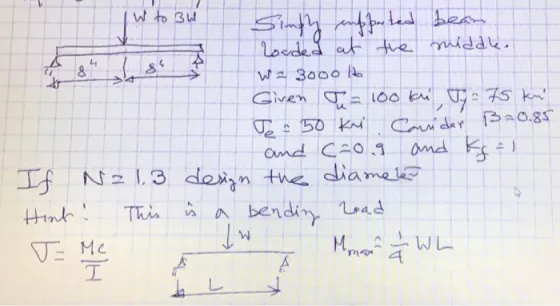 W to 3W
Simply supported beam
loaded at the middle.
8" 8"
W = 3000 lb
Given σu = 100 ksi, σy = 75 ksi
σe = 50 ksi. Consider β = 0.85
and C = 0.9 and Kf = 1
If N = 1.3 design the diameter
Hint: This is a bending load
σ = Mc/I
W
Mmax = 1/4 WL
L